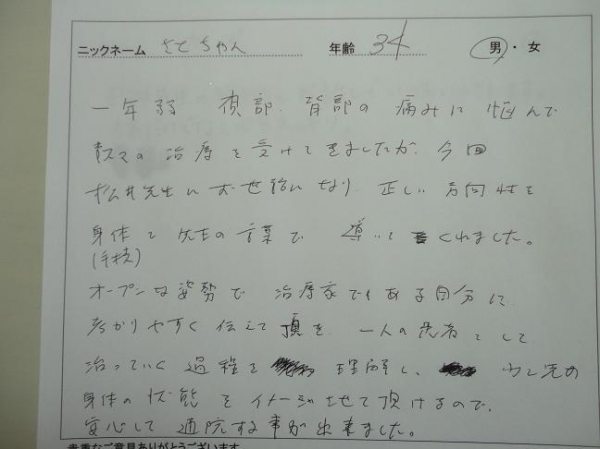 ニックネーム さとちゃん 年齢 34 男・女
一年弱 頚部、背部の痛みに悩んで
様々の治療を受けてきましたが、今回
松井先生にお世話になり、正しい方向性を
身体と先生の言葉で 導いてくれました。
(手技)
オープンな姿勢で 治療家でもある自分に
分かりやすく伝えて頂き、一人の患者として
治っていく過程を 理解し、少し先の
身体の状態をイメージさせて頂けるので、
安心して通院する事が出来ました。
貴重なご意見ありがとうございます